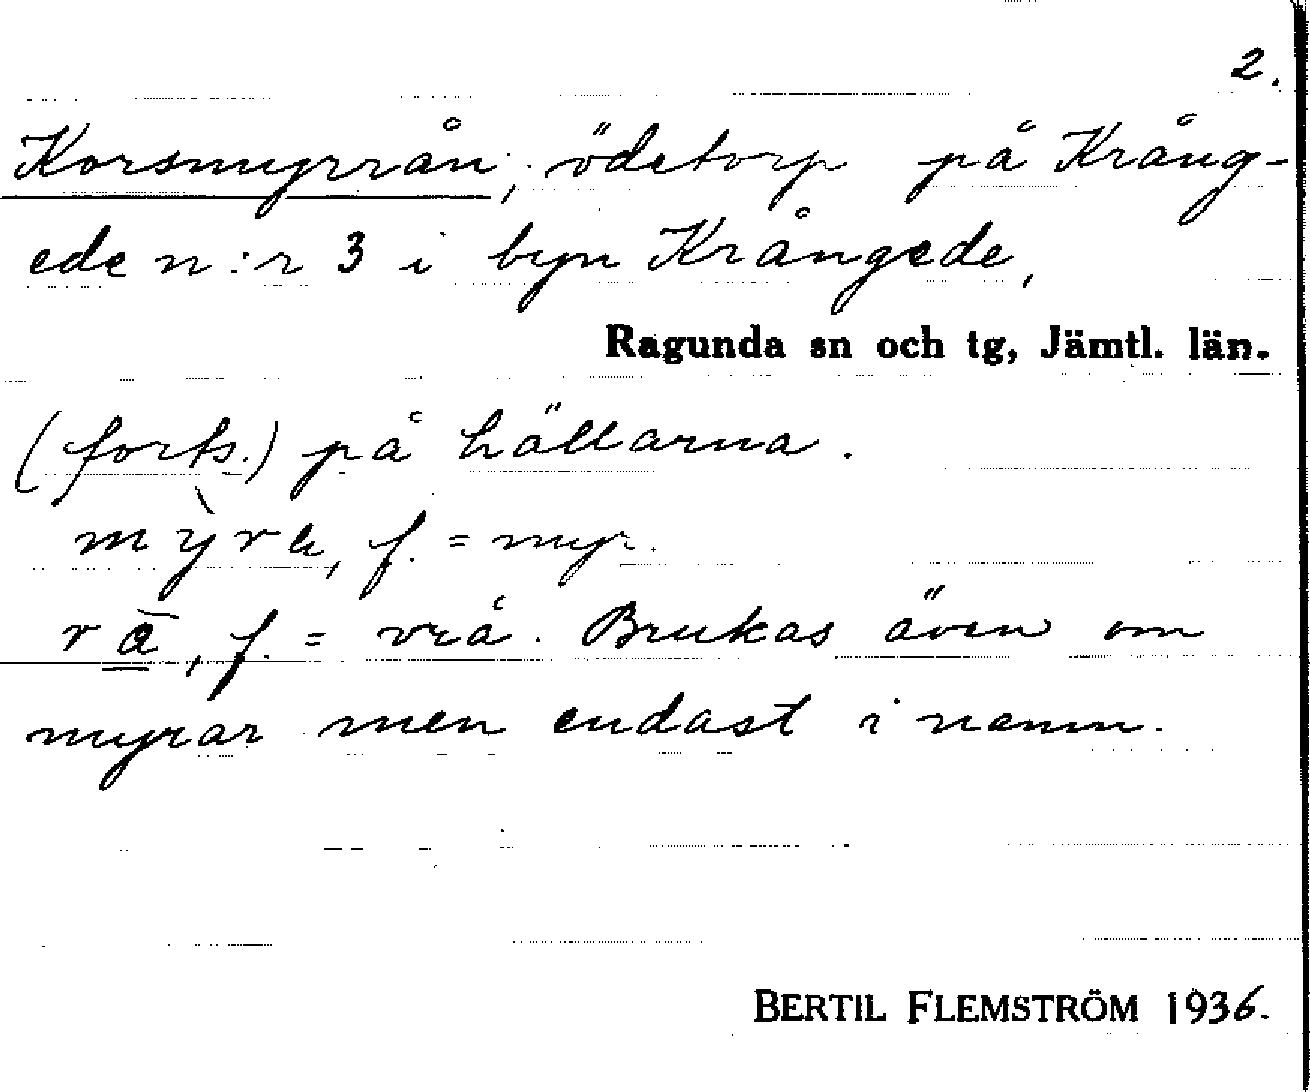 2.
Korsmyrrån, ödetorp på Krång-
ede n:r 3 i byn Krångede,
Ragunda sn och tg, Jämtl. län.
(forts.) på hällarna.
f. = myr.
f. = vrå. Brukas även om
myrar men endast i namn.
BERTIL FLEMSTRÖM 1936.